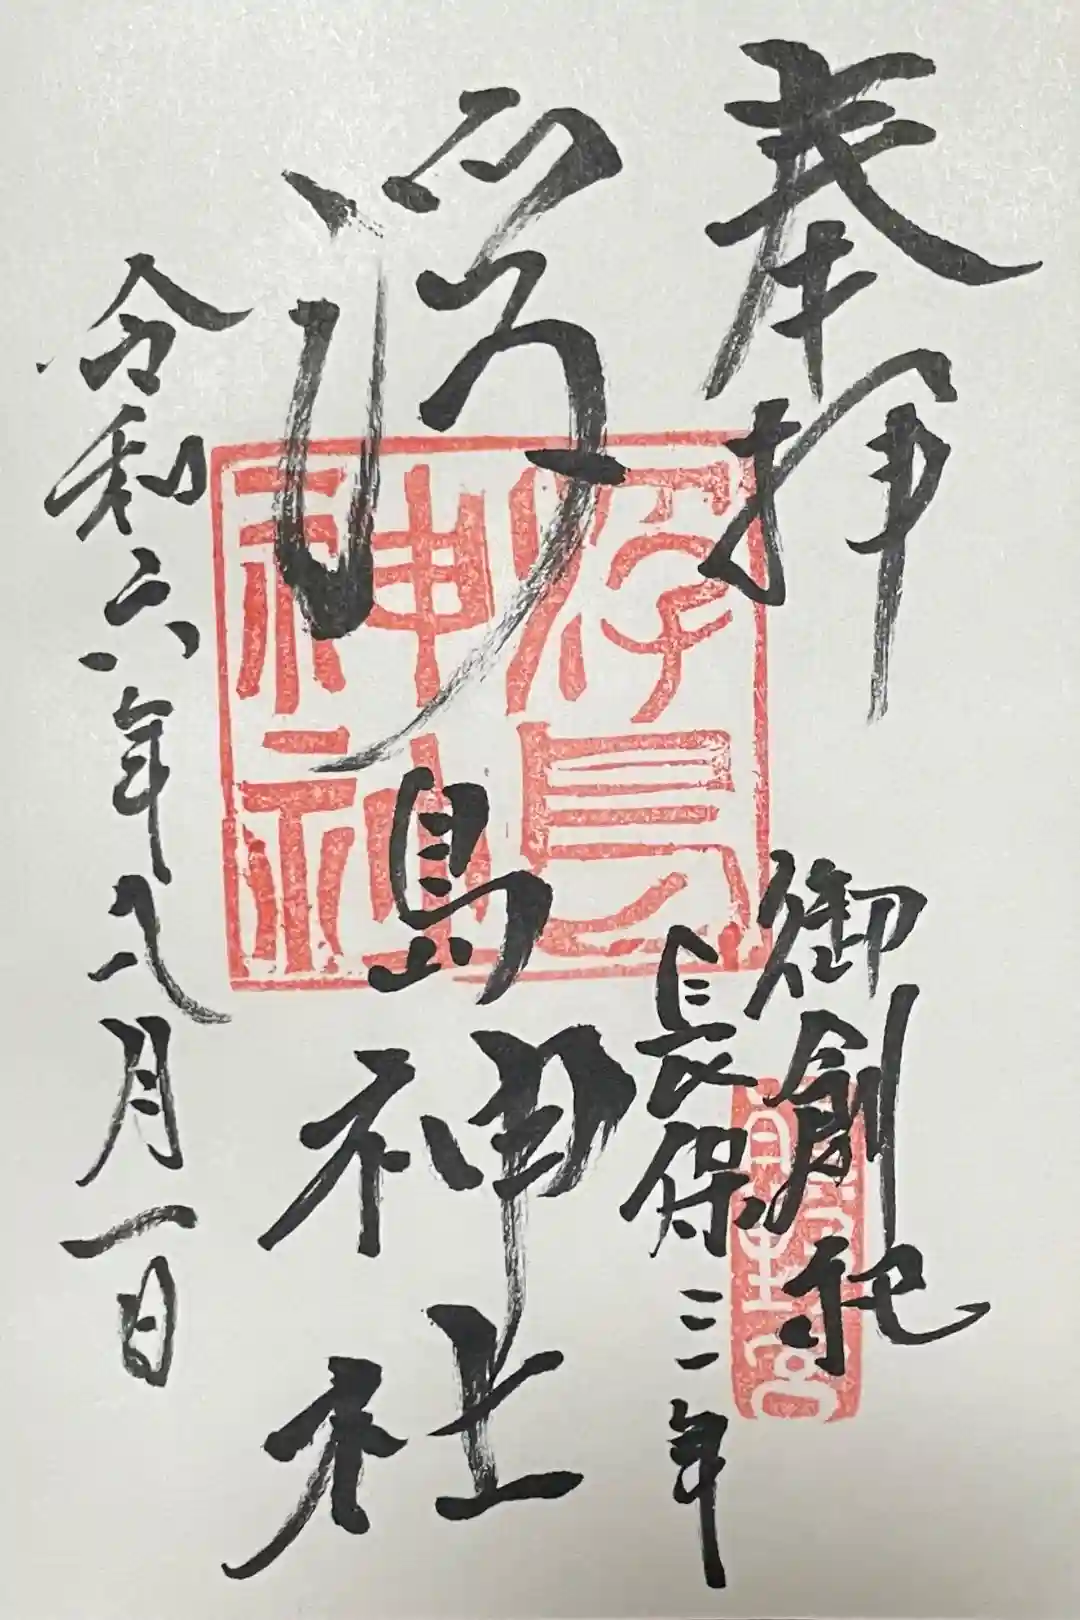 奉拝
御創祀
長保三年
浮島神社
浮島
神社
令和六年九月一日